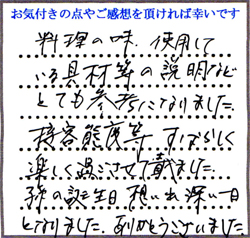 お気付きの点やご感想を頂ければ幸いです
料理の味、使用して
いる具材等の説明など
とても参考になりました。
接客態度等 すばらしく
楽しく過ごさせて頂きました。
孫の誕生日 想い出深い一日
となりました。ありがとうございました